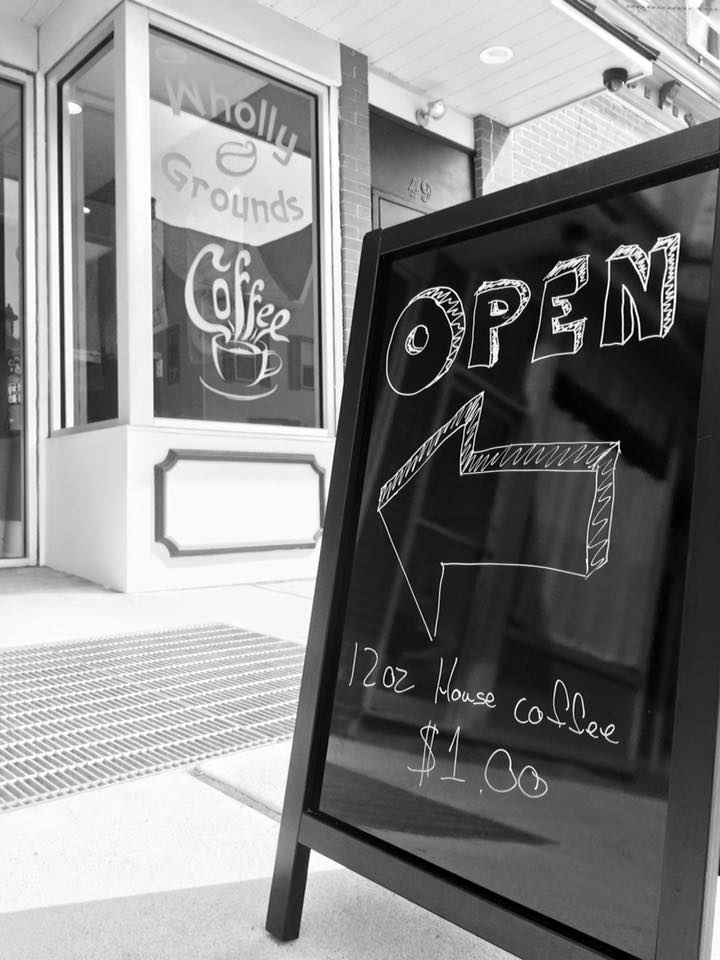 Wholly
Grounds
Coffee
49
OPEN
12oz House coffee
$1.00